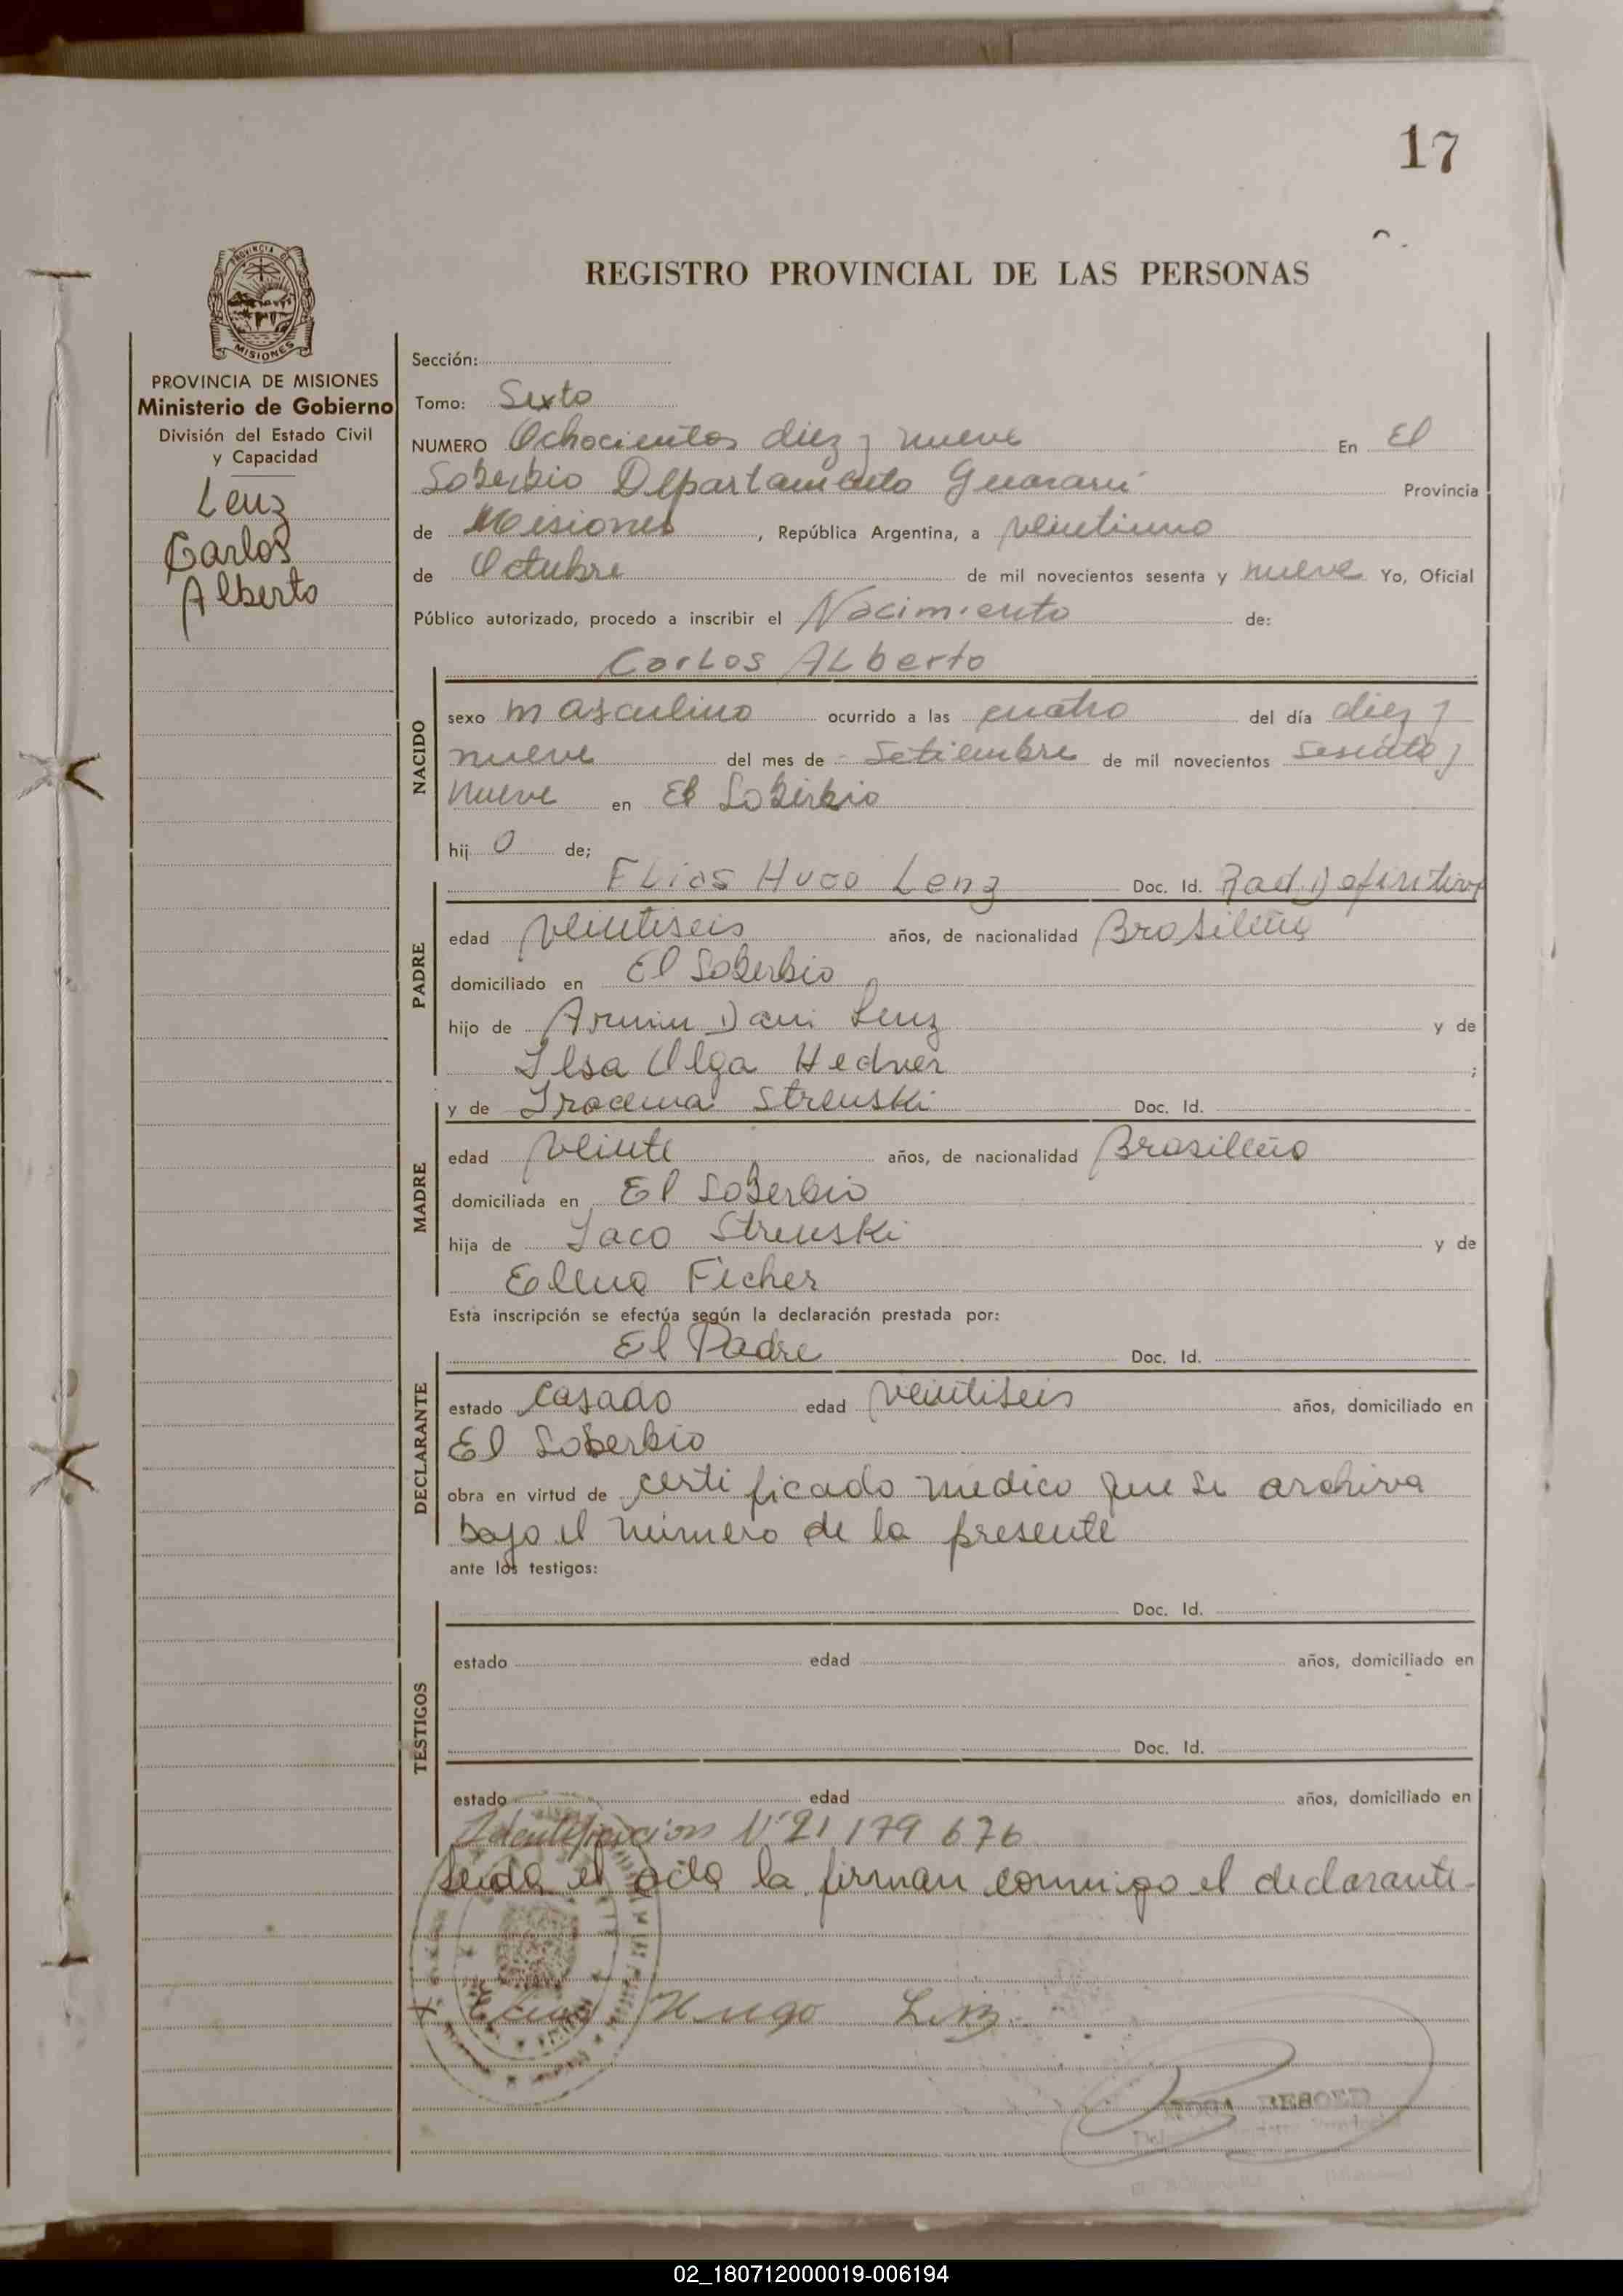 17
PROVINCIA DE
MISIONES
REGISTRO PROVINCIAL DE LAS PERSONAS
PROVINCIA DE MISIONES
Ministerio de Gobierno
División del Estado Civil
y Capacidad
Lenz
Carlos
Alberto
Sección:
Tomo: Sexto
NUMERO Ochocientos diez y nueve En El
Soberbio Departamento Guarani Provincia
de Misiones, República Argentina, a veintiuno
de Octubre de mil novecientos sesenta y nueve Yo, Oficial
Público autorizado, procedo a inscribir el Nacimiento de:
Carlos Alberto
NACIDO
sexo masculino ocurrido a las cuatro del día diez y
nueve del mes de Setiembre de mil novecientos sesenta y
nueve en El Soberbio
hij o de;
PADRE
Elias Hugo Lenz Doc. Id. Rad. Definitiva
edad veintiseis años, de nacionalidad Brasileña
domiciliado en El Soberbio
hijo de Armin Dani Lenz y de
Ilsa Olga Hedner ;
MADRE
y de Iracema Strenski Doc. Id.
edad veinte años, de nacionalidad Brasileña
domiciliada en El Soberbio
hija de Jaco Strenski y de
Elena Ficher
Esta inscripción se efectúa según la declaración prestada por:
DECLARANTE
El Padre Doc. Id.
estado casado edad veintiseis años, domiciliado en
El Soberbio
obra en virtud de certificado medico que se archiva
bajo el número de la presente
ante los testigos:
TESTIGOS
Doc. Id.
estado edad años, domiciliado en
Doc. Id.
estado edad años, domiciliado en
Identificacion Nº 21 179 676
Leida el acta la firman conmigo el declarante-
Hugo Lenz
02_180712000019-006194